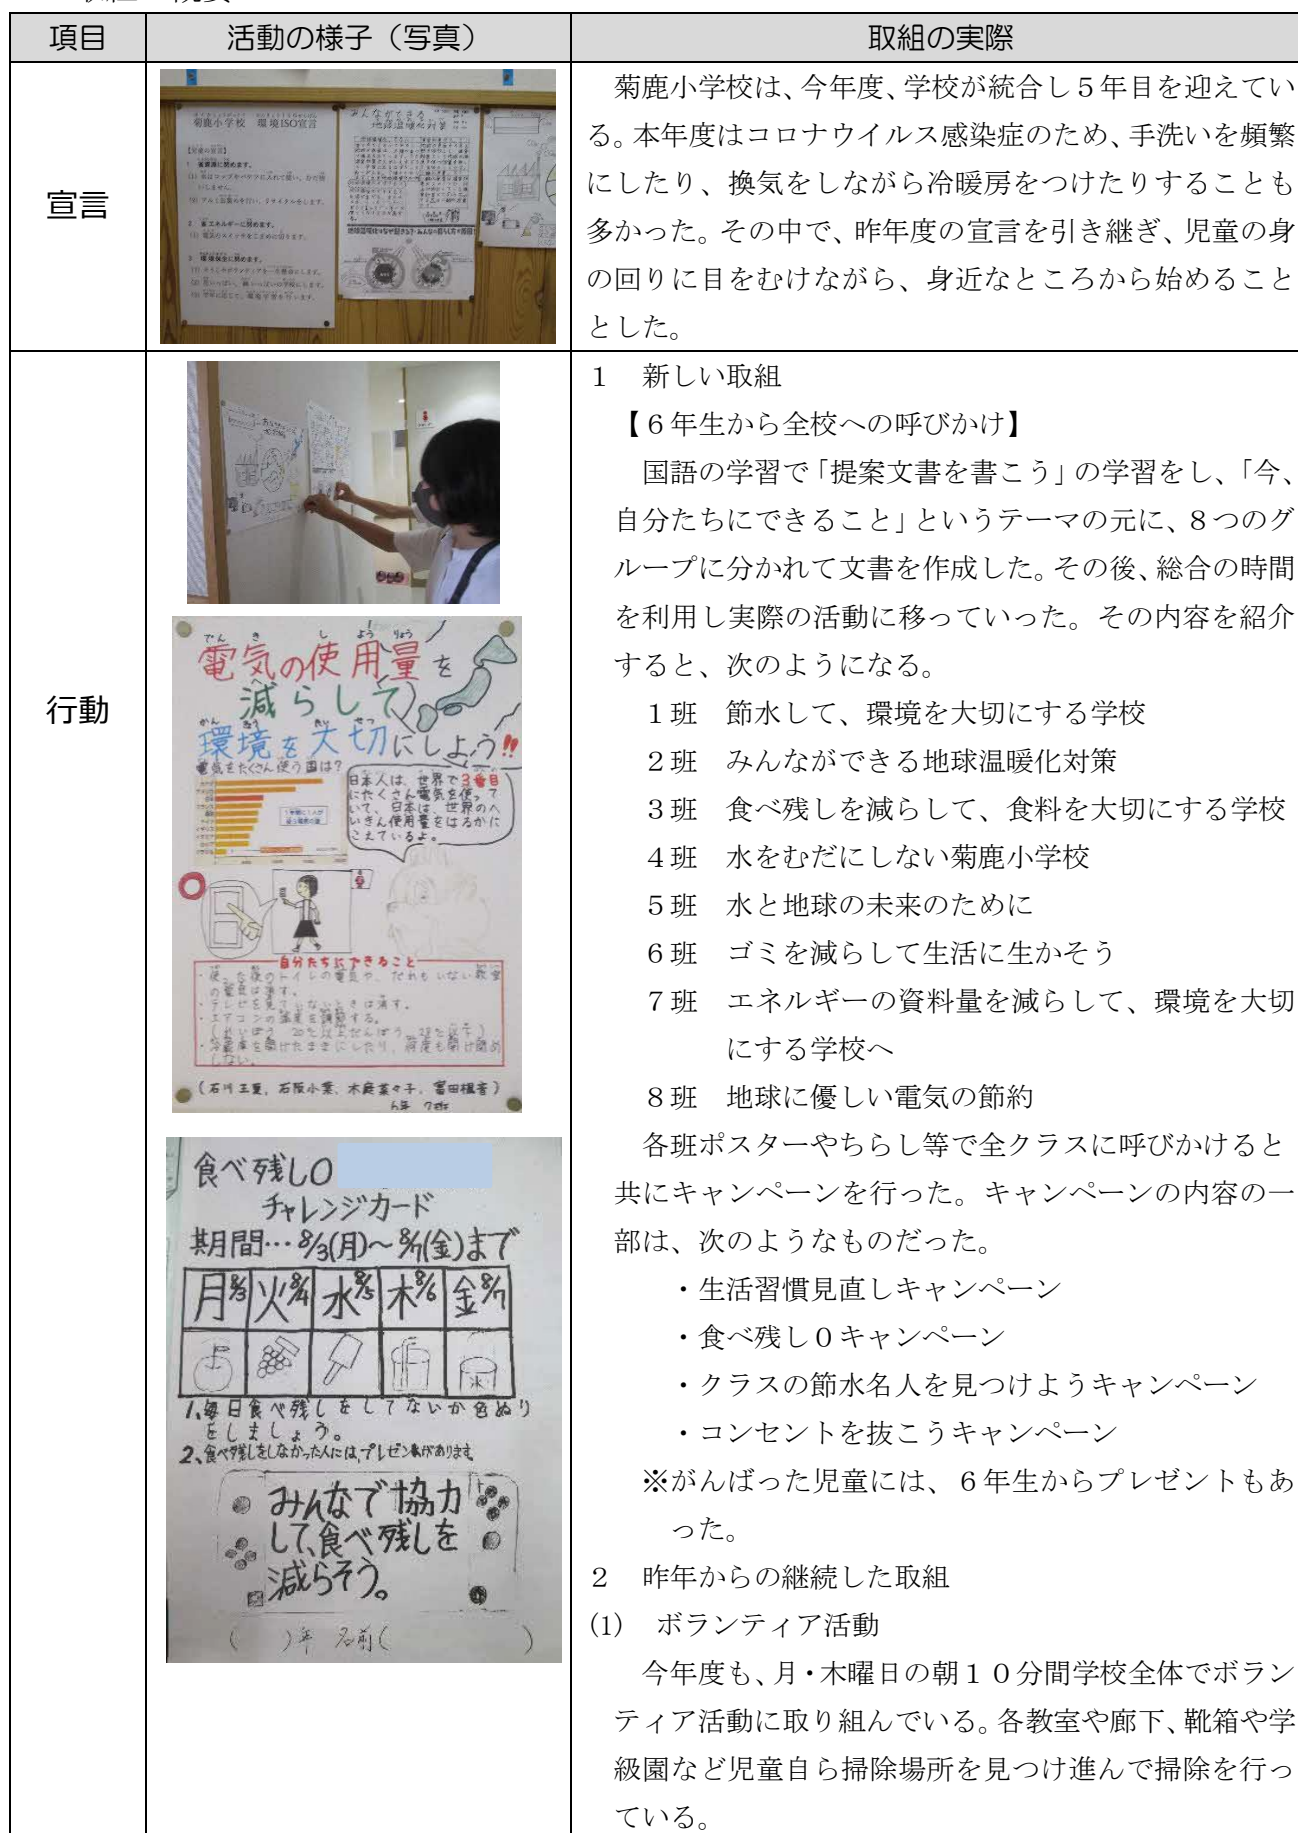 項目
活動の様子（写真）
取組の実際
宣言
菊鹿小学校　環境ISO宣言
みんなができる
地球温暖化対策
菊鹿小学校は、今年度、学校が統合し５年目を迎えてい
る。本年度はコロナウイルス感染症のため、手洗いを頻繁
にしたり、換気をしながら冷暖房をつけたりすることも
多かった。その中で、昨年度の宣言を引き継ぎ、児童の身
の回りに目をむけながら、身近なところから始めること
とした。
行動
電気の使用量を
減らして
環境を大切にしよう!!
電気をたくさん使う国は？
日本人は、世界で3番目
にたくさん電気を使って
いて、日本は、世界のへ
いきん使用量をはるかに
こえているよ。
自分たちにできること
・使った後のトイレの電気や、だれもいない教室
の電気は消す。
・テレビを見ていないときは消す。
・エアコンの温度を調節する。
・冷蔵庫を開けたままにしたり、何度も開け閉め
しない。
6年 7班
食べ残し0
チャレンジカード
期間…8/3(月)～8/7(金)まで
月8/3 火8/4 水8/5 木8/6 金8/7
氷
1、毎日食べ残しをしてないか色ぬり
をしましょう。
2、食べ残しをしなかった人には、プレゼントがあります。
みんなで協力
して、食べ残しを
減らそう。
(　　)年 名前(　　　　)
１　新しい取組
【６年生から全校への呼びかけ】
国語の学習で「提案文書を書こう」の学習をし、「今、
自分たちにできること」というテーマの元に、８つのグ
ループに分かれて文書を作成した。その後、総合の時間
を利用し実際の活動に移っていった。その内容を紹介
すると、次のようになる。
１班　節水して、環境を大切にする学校
２班　みんなができる地球温暖化対策
３班　食べ残しを減らして、食料を大切にする学校
４班　水をむだにしない菊鹿小学校
５班　水と地球の未来のために
６班　ゴミを減らして生活に生かそう
７班　エネルギーの資料量を減らして、環境を大切
にする学校へ
８班　地球に優しい電気の節約
各班ポスターやちらし等で全クラスに呼びかけると
共にキャンペーンを行った。キャンペーンの内容の一
部は、次のようなものだった。
・生活習慣見直しキャンペーン
・食べ残し０キャンペーン
・クラスの節水名人を見つけようキャンペーン
・コンセントを抜こうキャンペーン
※がんばった児童には、６年生からプレゼントもあ
った。
２　昨年からの継続した取組
(1)　ボランティア活動
今年度も、月・木曜日の朝１０分間学校全体でボラン
ティア活動に取り組んでいる。各教室や廊下、靴箱や学
級園など児童自ら掃除場所を見つけ進んで掃除を行っ
ている。